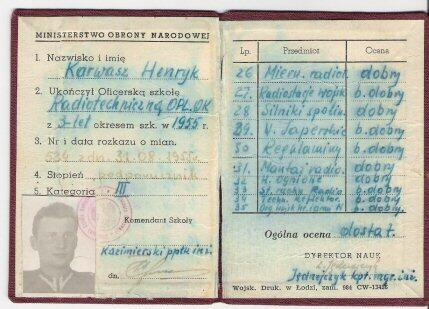 MINISTERSTWO OBRONY NARODOWEJ
1. Nazwisko i imię
Karwasz Henryk
2. Ukończył Oficerską szkołę
Radiotechniczną OPL. OK
z 3-let okresem szk. w 1955 r.
3. Nr i data rozkazu o mian.
z dn. 31.08 1955
4. Stopień podporucznik
5. Kategoria III
Komendant Szkoły
Kazimierski ppłk inż.
dn.
Lp. Przedmiot Ocena
26 dobry
27. Radiostacje wojsk b. dobry
28 Silniki spalin. dobry
29. dobry
30 Regulaminy b. dobry
31. Montaż radio. dobry
32 W. ogniowe dobry
33 b. dobry
34 b. dobry
35 b. dobry
Ogólna ocena dostat.
DYREKTOR NAUK
Jędrzejczyk kpt. mgr. inż.
Wojsk. Druk. w Łodzi, zam. 984 CW-13428